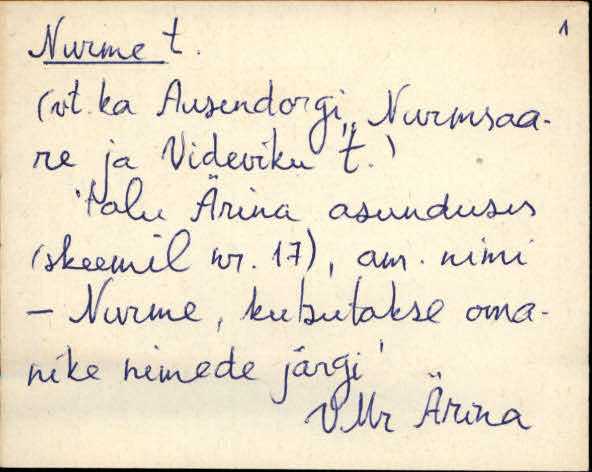 1
Nurme t.
(vt. ka Ausendorgi, Nurmsaa-
re ja Videviku t.)
'talu Ärina asunduses
(skeemil nr. 17), am. nimi
- Nurme, kutsutakse oma-
nike nimede järgi'
VMr Ärina